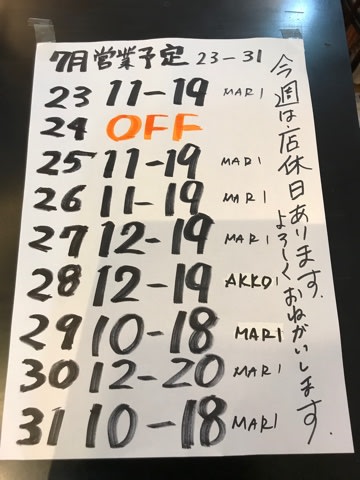 7月営業予定 23-31
23 11-19 MARI
24 OFF
25 11-19 MARI
26 11-19 MARI
27 12-19 MARI
28 12-19 AKKO!
29 10-18 MARI
30 12-20 MARI
31 10-18 MARI
今週は、店休日あります。
よろしくおねがいします。